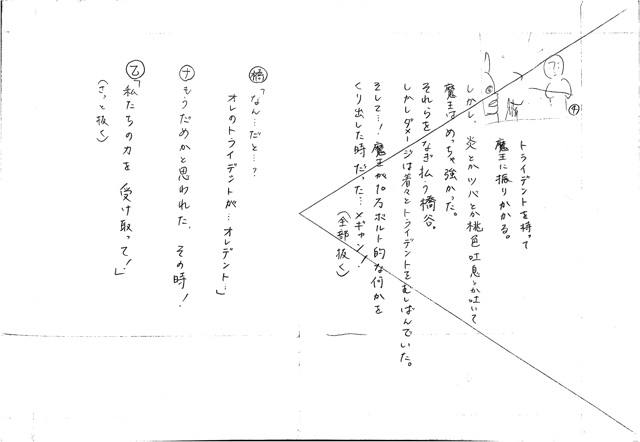 ④
トライデントを持って
魔王に振りかかる。
しかし、炎とかツバとか桃色吐息とか吐いて
魔王はめっちゃ強かった。
それらをなぎ払う橋谷。
しかしダメージは着々とトライデントをむしばんでいた。
そして…！魔王が10万ボルト的な何かを
くり出した時だった…メギャン！
（全部抜く）
橋「なん…だと…？
オレのトライデントが…オレデント…」
ナ もうだめかと思われた、その時！
乙「私たちの力を受け取って！」
（さっと抜く）